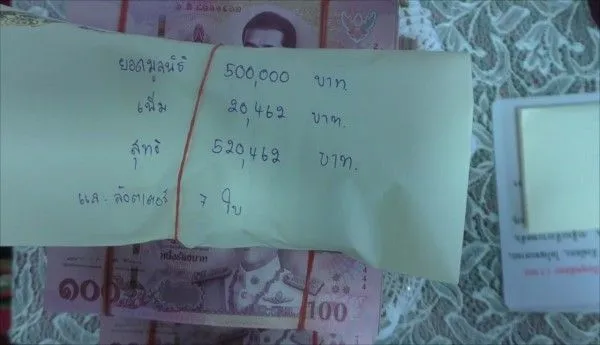 ยอดมูลนิธิ 500,000 บาท.
เพิ่ม 20,462 บาท.
สุทธิ 520,462 บาท.
และ ล๊อตเตอรี่ 7 ใบ
หนึ่งร้อยบาท
๑๐๐
100